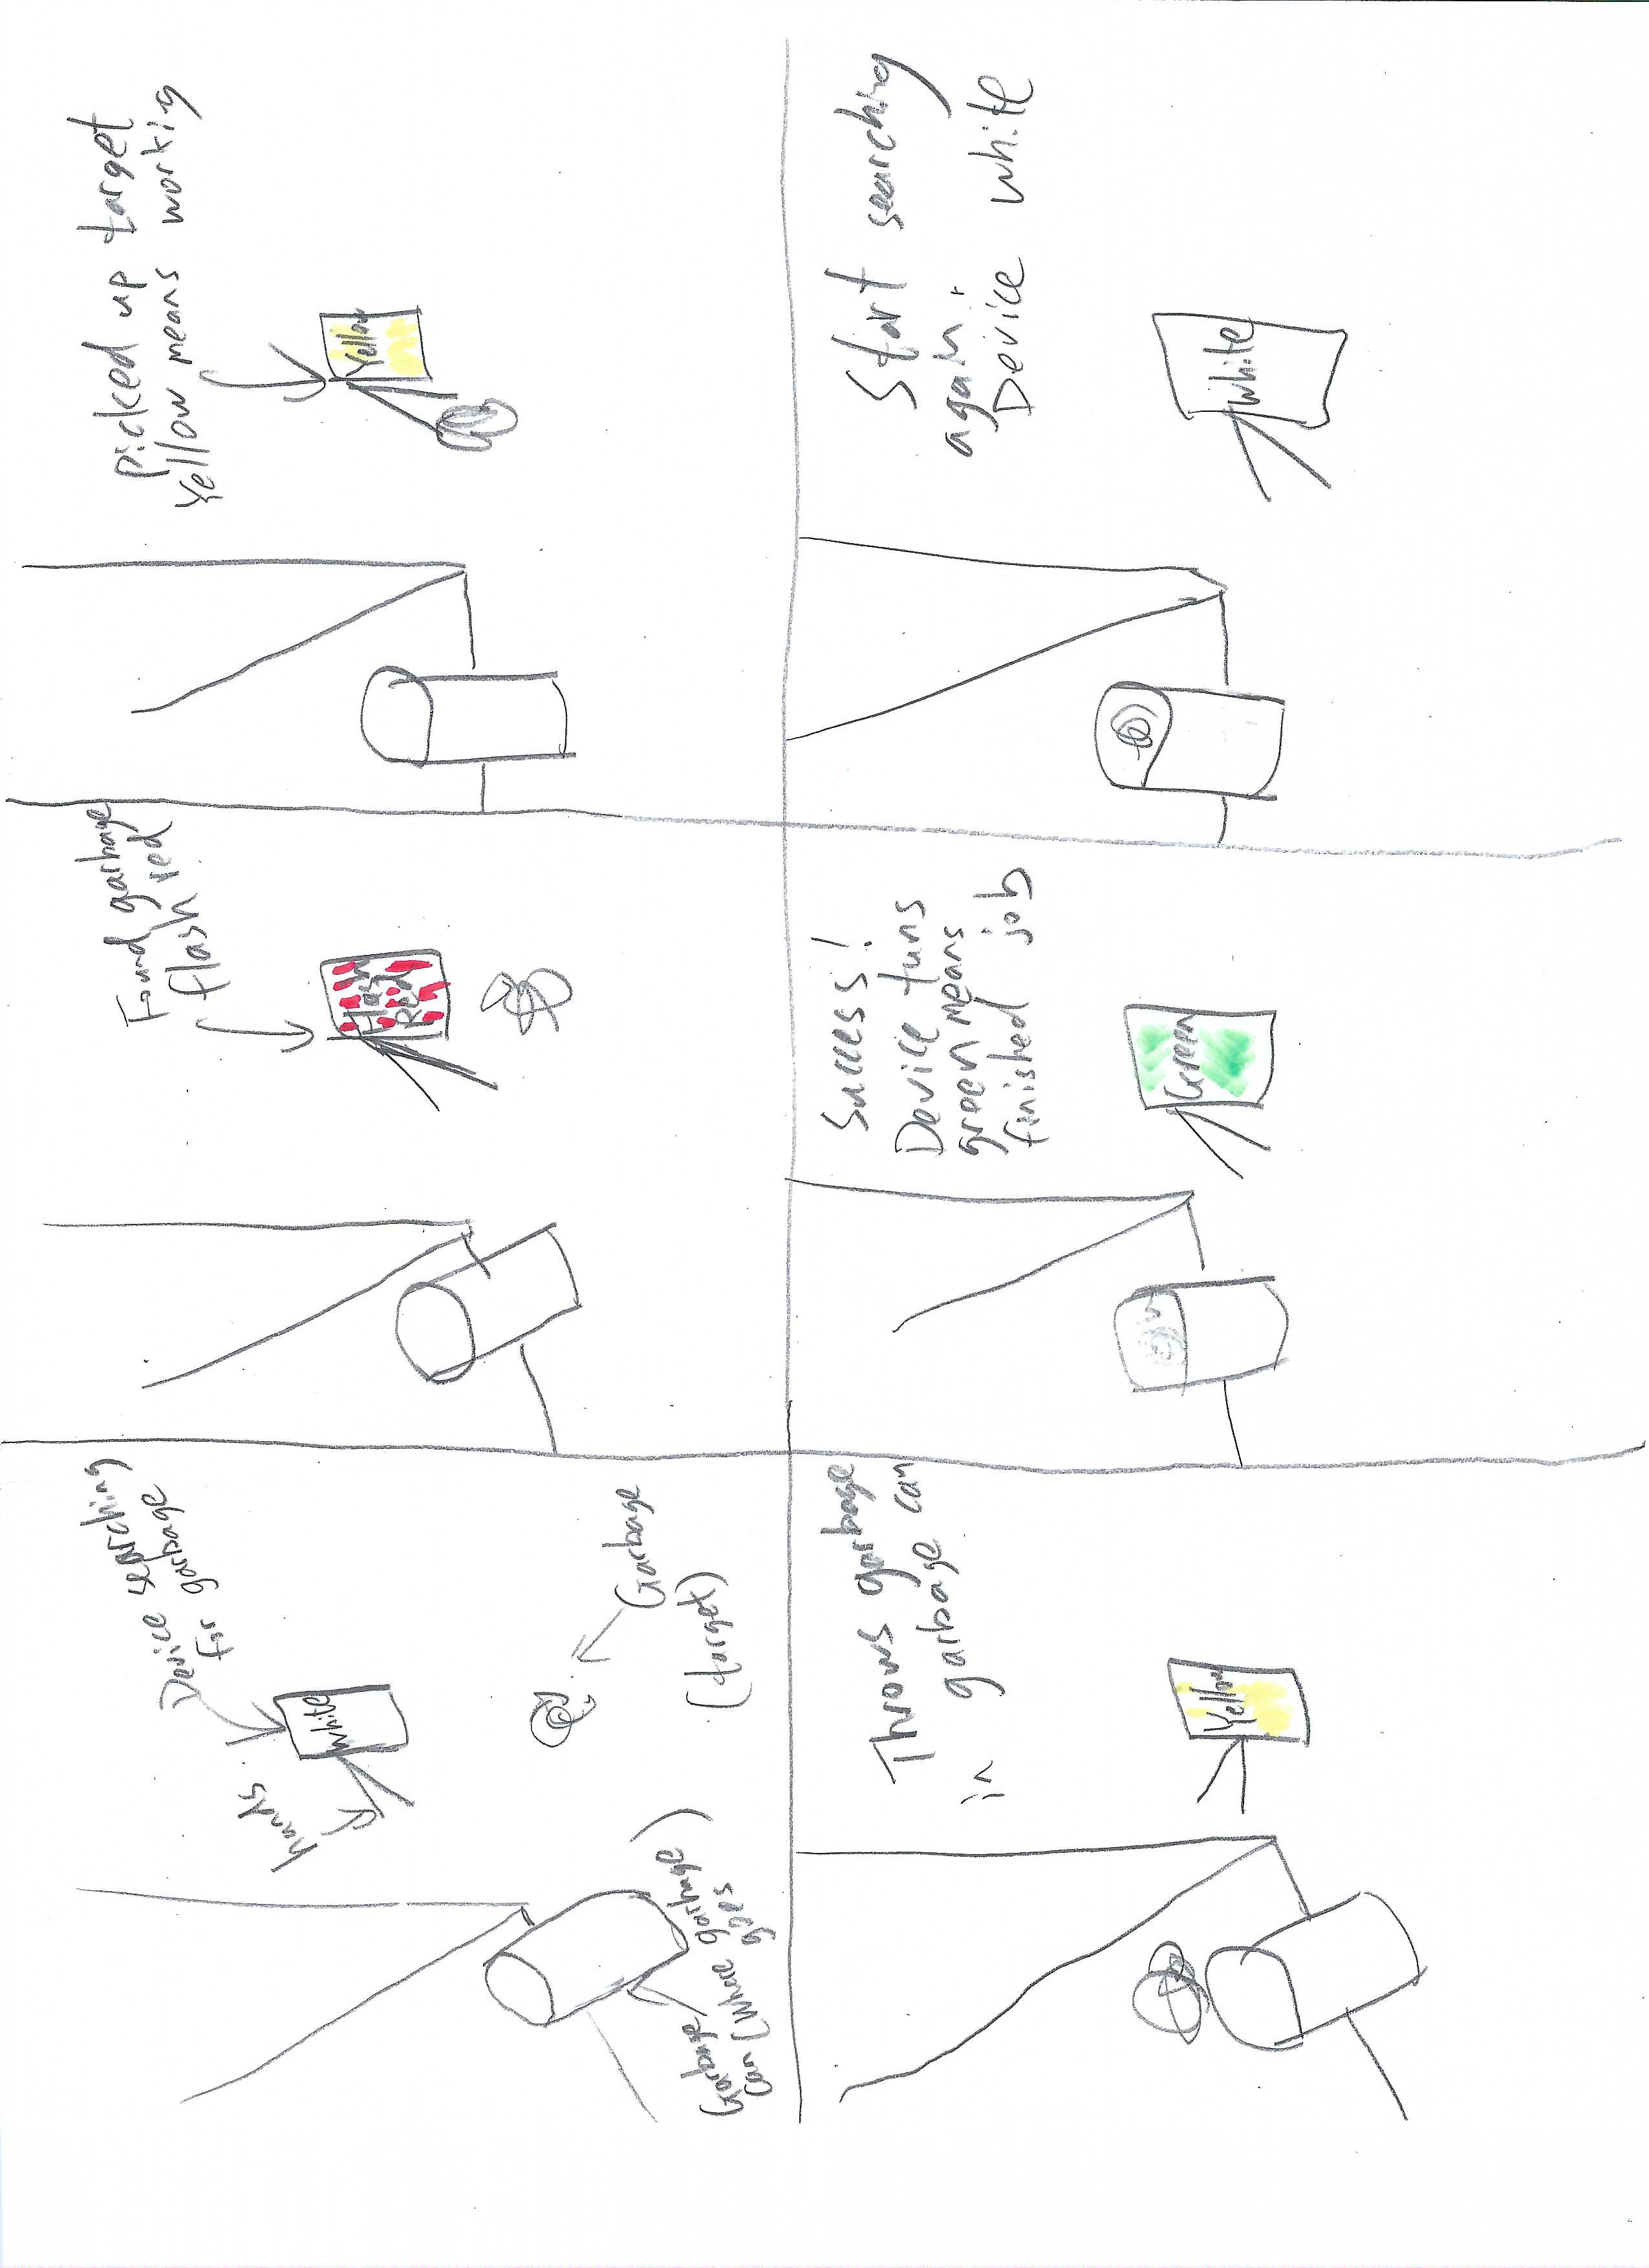 Device searching
for garbage
hands
White
Garbage
(target)
Garbage
can (Where garbage
goes)
Found garbage
flash red
Flash
Red
picked up target
Yellow means working
Yellow
Throws garbage
in garbage can
Yellow
Success!
Device tuns
green means
finished job
Green
Start searching
again.
Device white
White